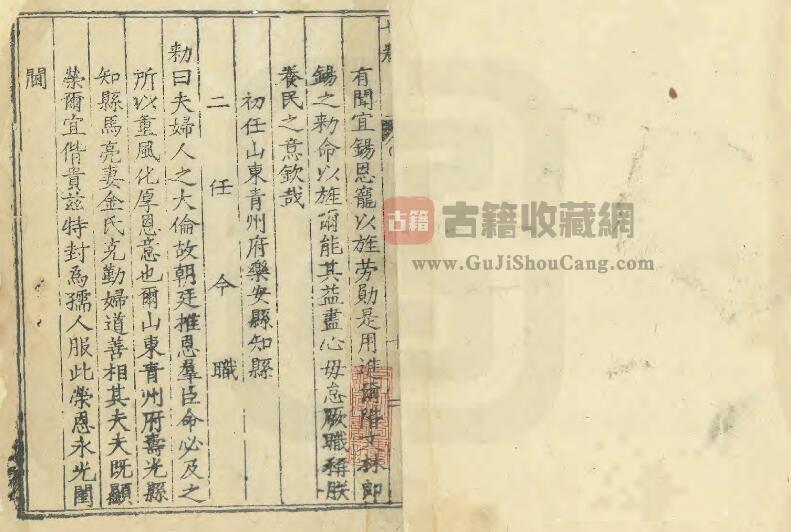 有聞宜錫恩寵以旌勞勛是用進爾階文林郎
錫之勑命以旌爾能其益盡心毋怠厥職稱朕
養民之意欽哉
初任山東青州府樂安縣知縣
二任今職
勑曰夫婦人之大倫故朝廷推恩羣臣命必及之
所以重風化厚恩意也爾山東青州府壽光縣
知縣馬亮妻金氏克勤婦道善相其夫夫既顯
榮爾宜偕貴兹特封爲孺人服此榮恩永光閨
閫
古籍
古籍收藏網
www.GuJiShouCang.com